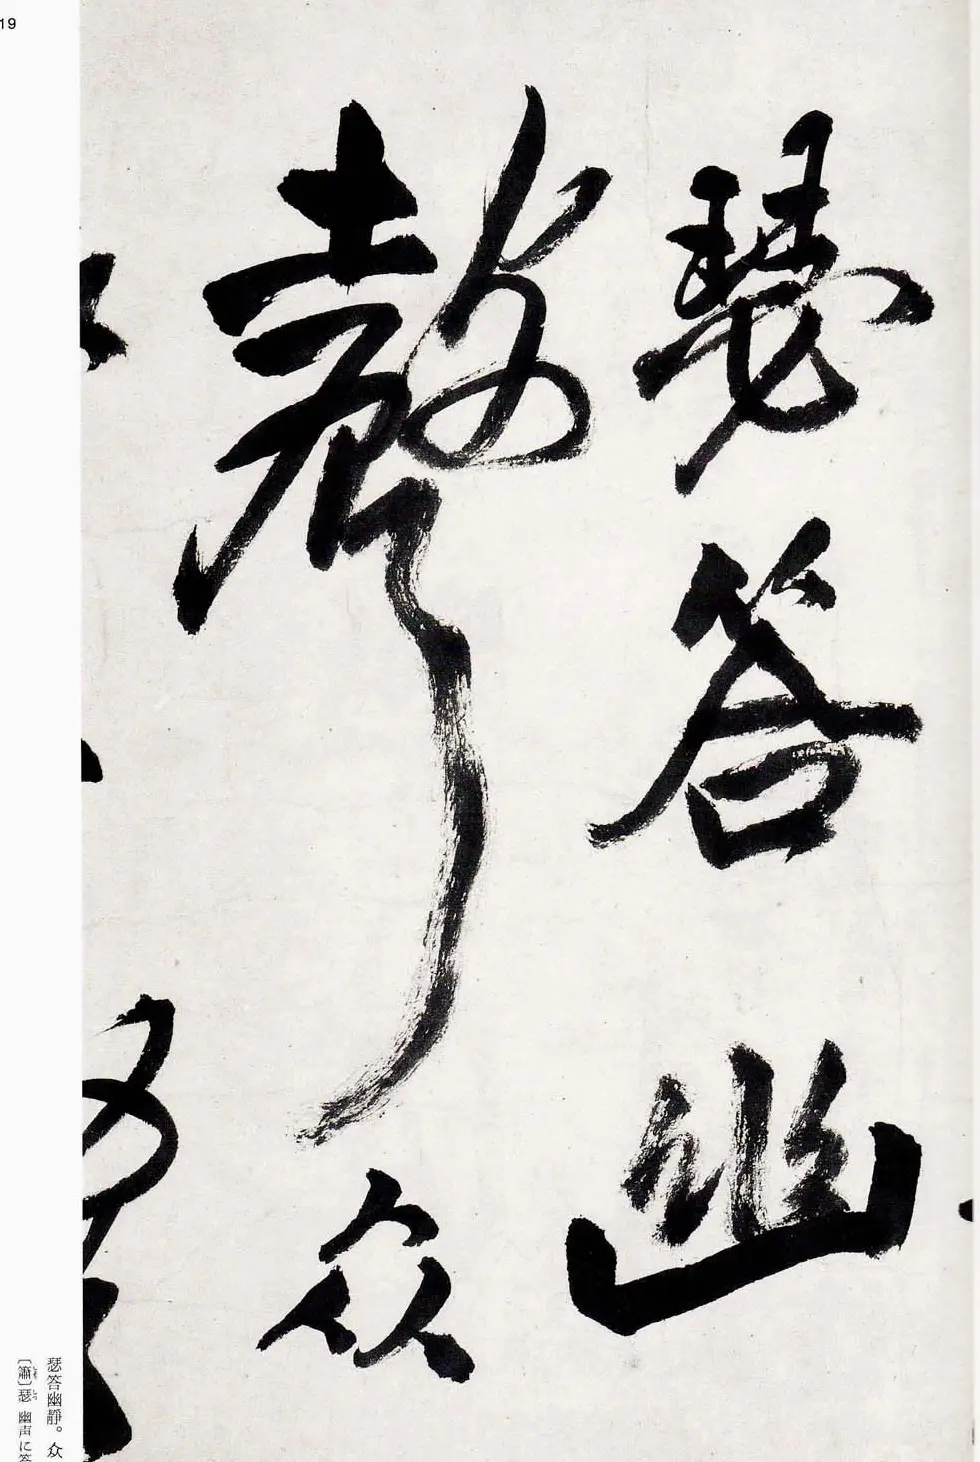 19
瑟答幽
聲众
瑟答幽靜。众
〔簫〕瑟 幽声に答